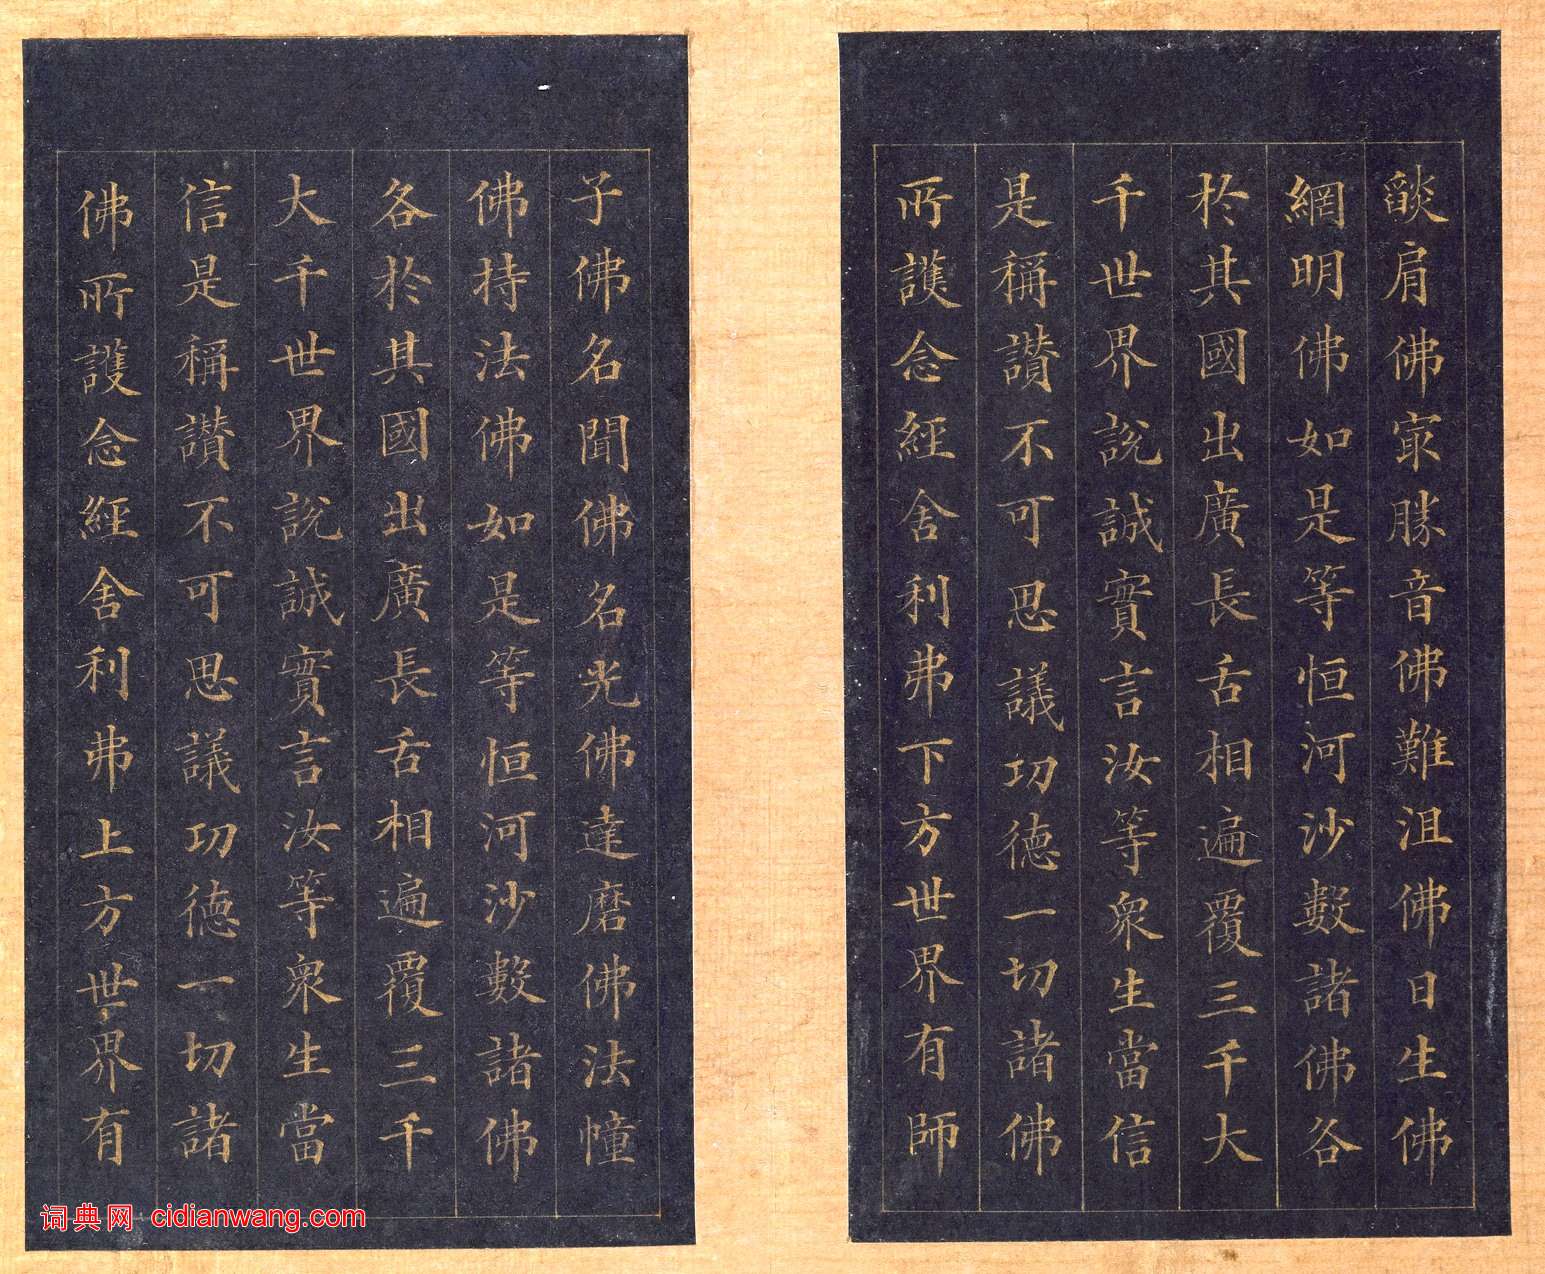 燄肩佛㝡勝音佛難沮佛日生佛
網明佛如是等恒河沙數諸佛各
於其國出廣長舌相遍覆三千大
千世界說誠實言汝等眾生當信
是稱讚不可思議功德一切諸佛
所護念經舍利弗下方世界有師
子佛名聞佛名光佛達磨佛法幢
佛持法佛如是等恒河沙數諸佛
各於其國出廣長舌相遍覆三千
大千世界說誠實言汝等眾生當
信是稱讚不可思議功德一切諸
佛所護念經舍利弗上方世界有
词典网 cidianwang.com